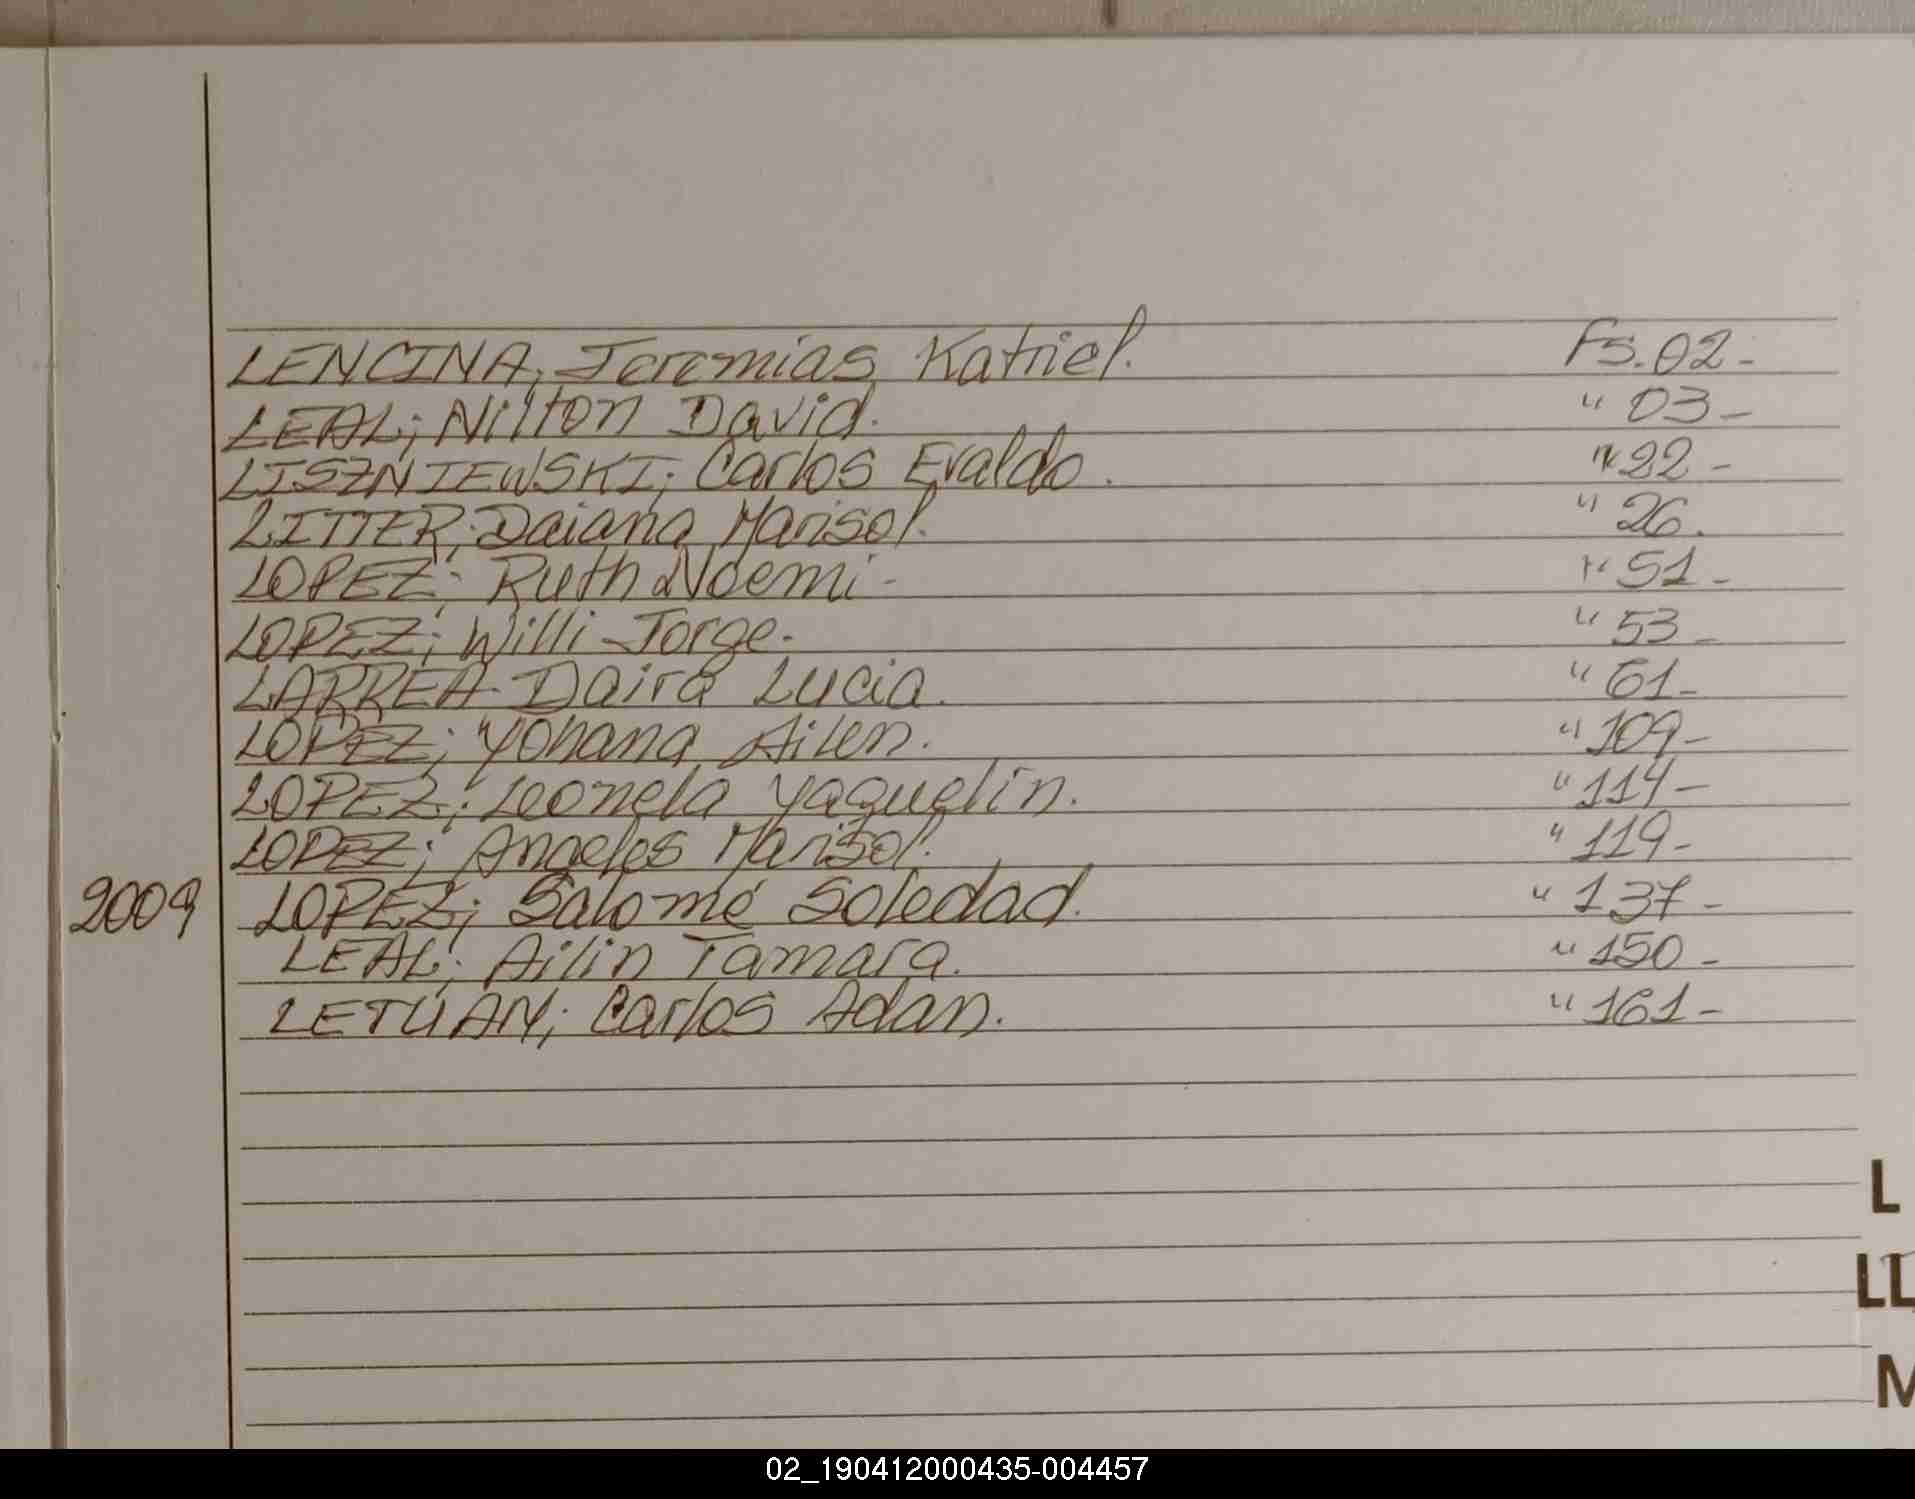 LENCINA, Jeremias Katriel. Fs. 02-
LEAL; Nilton David. " 03-
LISZNIEWSKI; Carlos Evaldo. " 22-
LITTER; Daiana Marisol. " 26.
LOPEZ; Ruth Noemi- " 51-
LOPEZ; Willi Jorge. " 53-
LARREA- Daira Lucia. " 61-
LOPEZ; Yohana Ailen. " 109-
LOPEZ; Leonela Yaquelin. " 114-
LOPEZ; Angeles Marisol. " 119-
2009 LOPEZ; Salomé Soledad. " 137-
LEAL; Ailin Tamara. " 150-
LETUAN; Carlos Adan. " 161-
L
LL
M
02_190412000435-004457